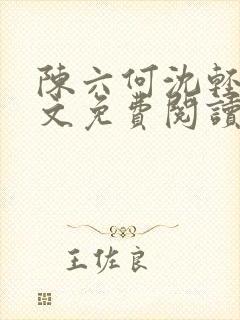 陳六何沈輕
文免費閱讀
王佐良